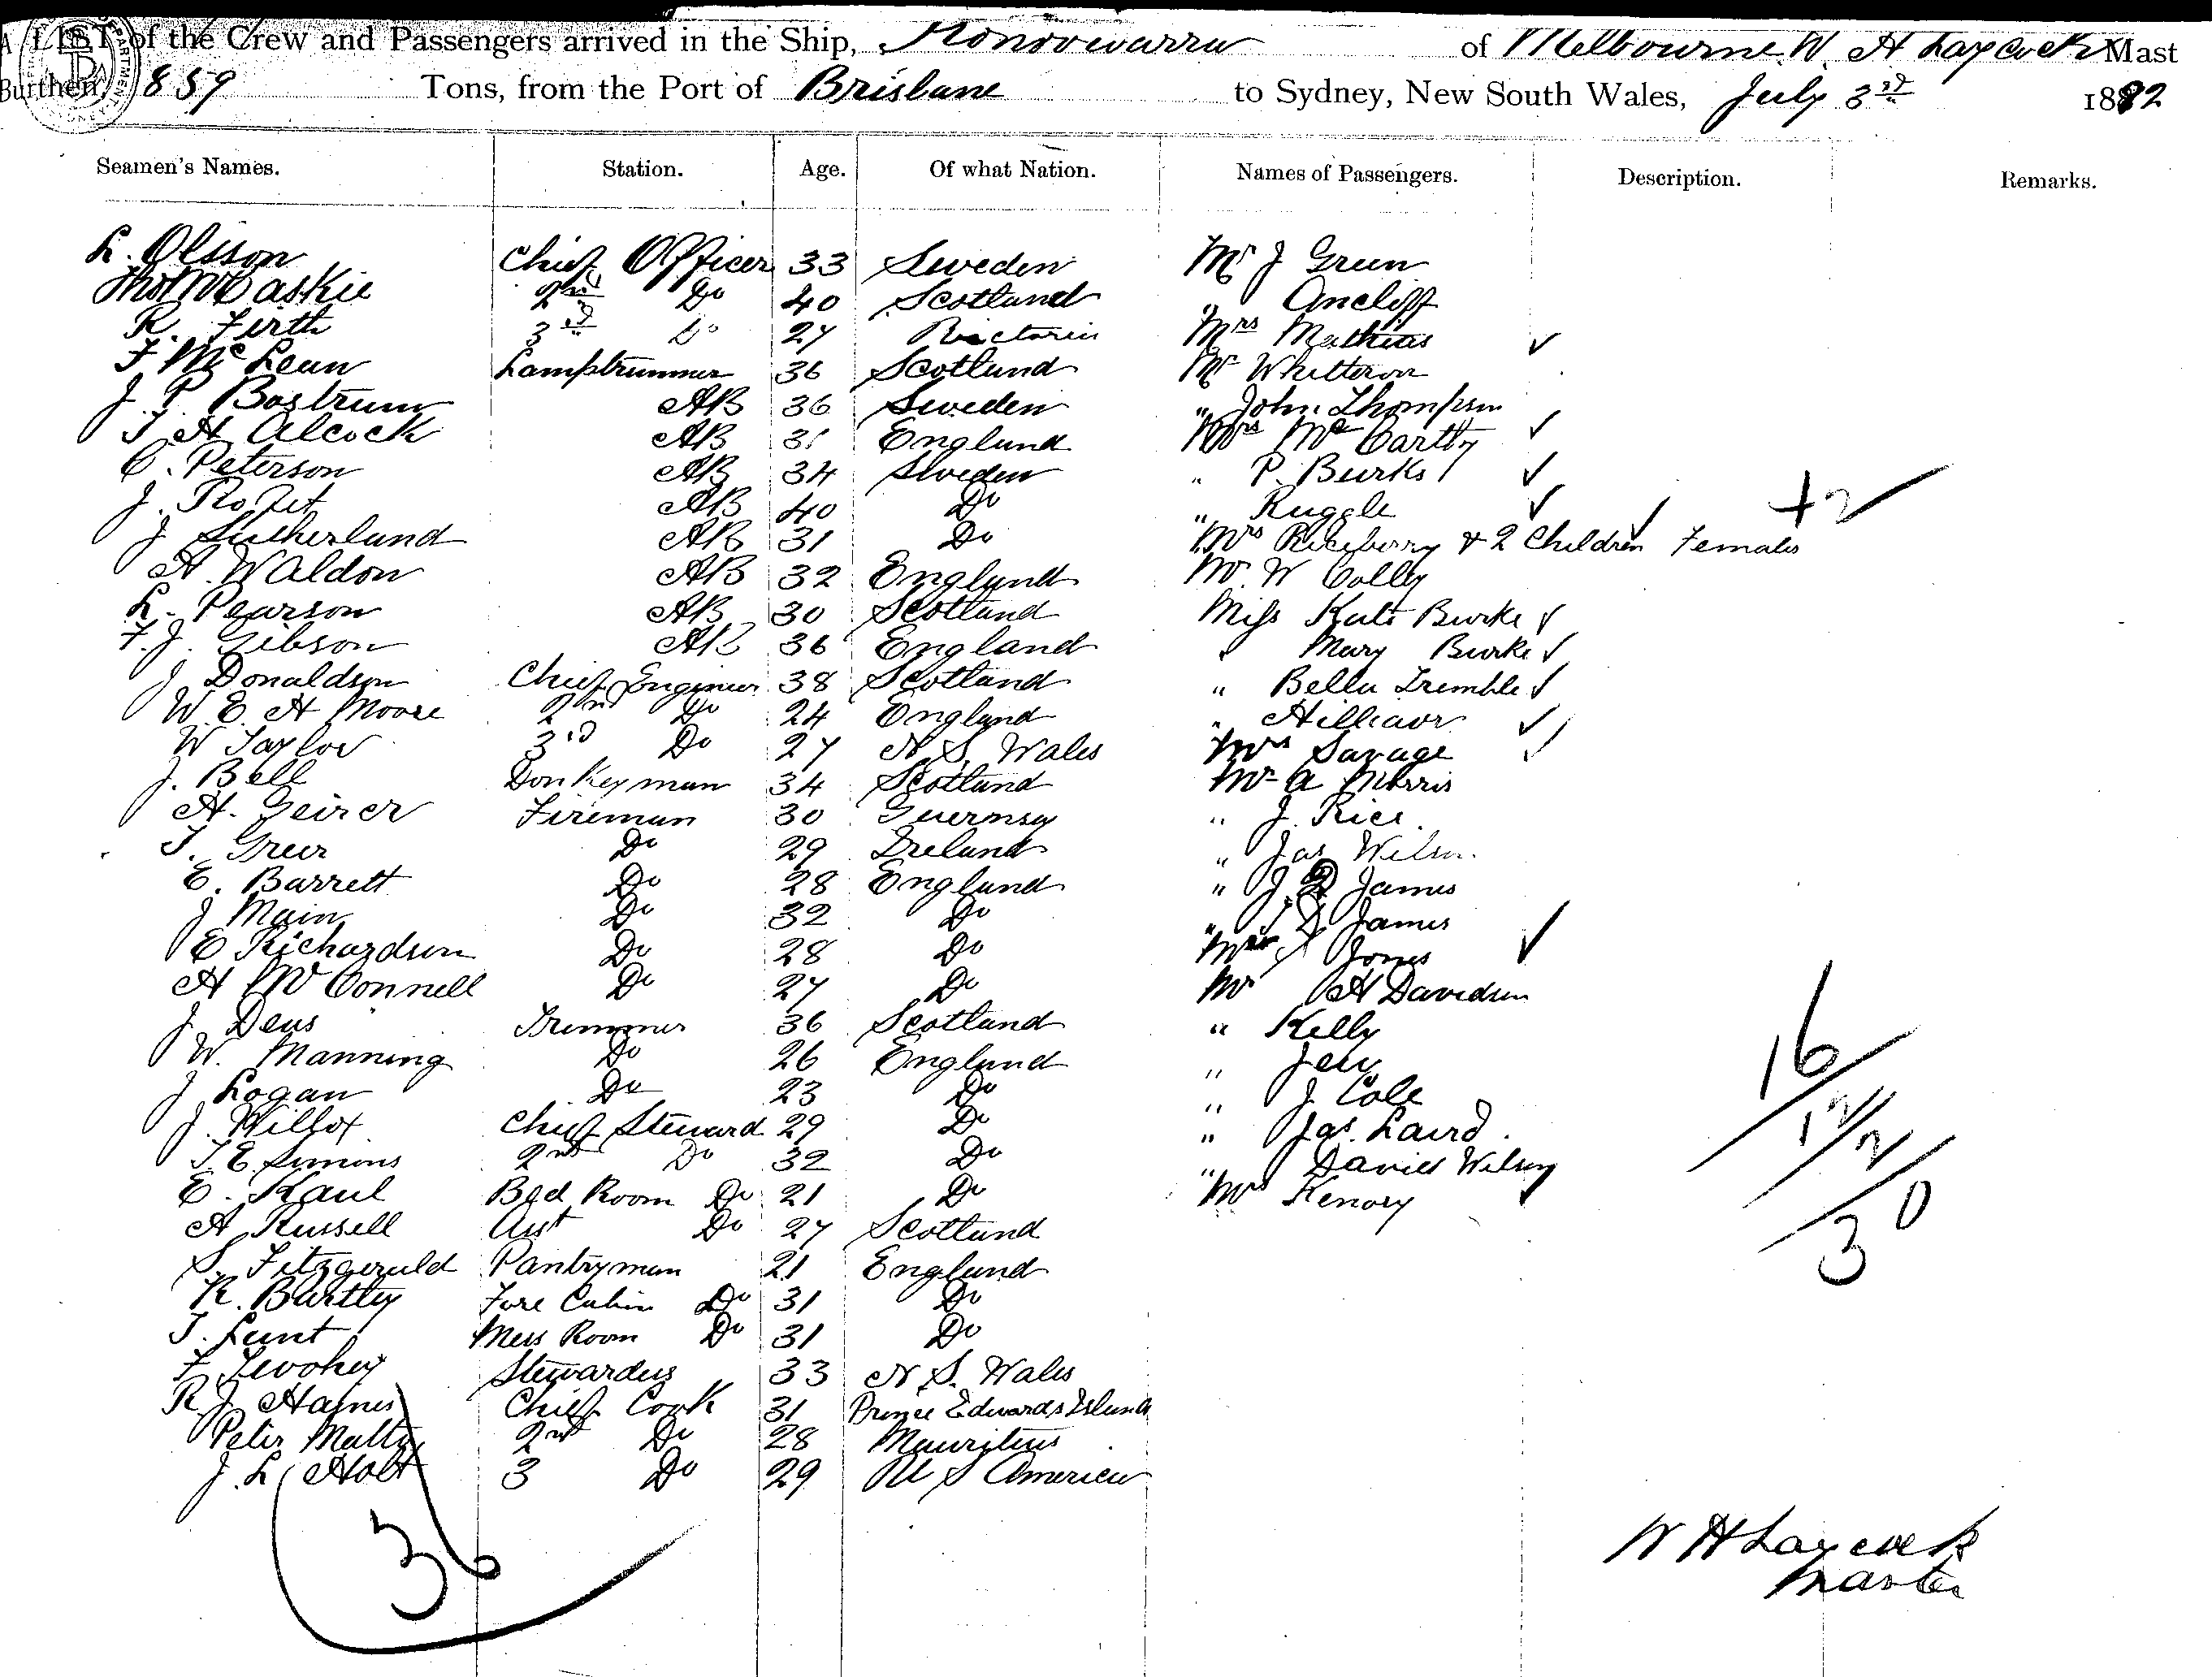 A LIST of the Crew and Passengers arrived in the Ship, Konoowarra of Melbourne W. H Laycock Mast
Burthen, 859 Tons, from the Port of Brisbane to Sydney, New South Wales, July 3rd 1892
Seamen's Names. Station. Age. Of what Nation. Names of Passengers. Description. Remarks.
L. Olsson Chief Officer 33 Sweden Mr J Green
Thos McCaskie 2nd Do 40 Scotland " Ancliff
R. Firth 3rd Do 27 Victoria Mrs Mathias ✓
F McLean Lamptrimmer 36 Scotland Mr Whitteron
J. P. Bostrum AB 36 Sweden " John Thompson
T H Alcock AB 31 England Mrs McCartty ✓
C. Peterson AB 34 Sweden " P. Burks ✓
J. AB 40 Do " Ruggle ✓ +2
J Sutherland AB 31 Do Mrs & 2 Children Females
A. Waldon AB 32 England Mr W Colley
L. Pearson AB 30 Scotland Miss Kate Burke ✓
F. J. Gibson AB 36 England " Mary Burke ✓
J Donaldson Chief Engineer 38 Scotland " Bella Tremble ✓
W. E. H Moore 2nd Do 24 England " ✓
W Taylor 3rd Do 27 N. S. Wales Mrs Savage ✓
J. Bell Donkeyman 34 Scotland Mr A Morris
A. Geirer Fireman 30 Guernsey " J. Rice
T. Greer Do 29 Ireland " Jas Wilson
E. Barrett Do 28 England " J. D James
J Main Do 32 Do " D James
E Richardson Do 28 Do Jones ✓
A McConnell Do 27 Do Mr H Davidson
J. Deus Trimmer 36 Scotland " Kelly
W. Manning Do 26 England "
J Logan Do 23 Do " J Cole
J. Willox Chief Steward 29 Do " Jas. Laird
T. E. Simons 2nd Do 32 Do " David Wilson
E. Kaul Bed Room Do 21 Do Mrs Kenory
A Russell Asst Do 27 Scotland
S. Fitzgerald Pantryman 21 England
R. Bartley Fore Cabin Do 31 Do
T. Lunt Mess Room Do 31 Do
F. Stewardess 33 N. S. Wales
R. J. Haines Chief Cook 31 Prince Edwards Island
Peter Malty 2nd Do 28 Mauritius
J. L. Holt 3 Do 29 U S America
16
12
2
30
36
W H Laycock
Master